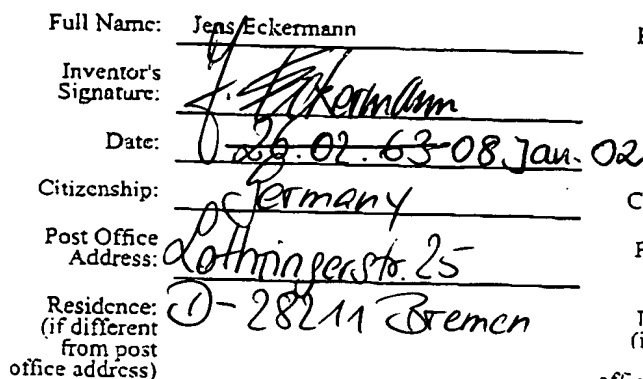 Full Name: Jens Eckermann
Inventor's
Signature: J. Eckermann
Date: 26.02.63 08 Jan. 02
Citizenship: Germany
Post Office
Address: Lothringerstr. 25
Residence: D-28211 Bremen
(if different
from post
office address)